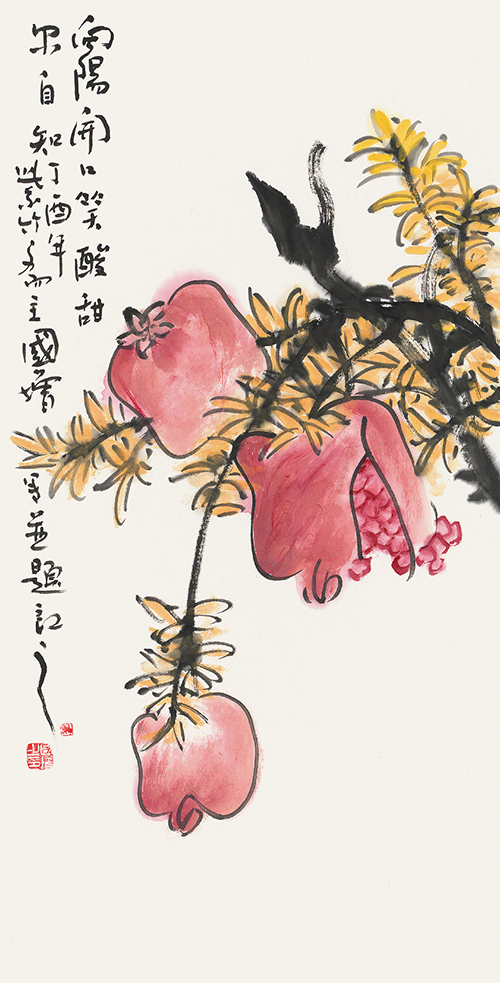 向陽開口笑酸甜
尔自知
丁酉年
紫竹斋主國写並題記之